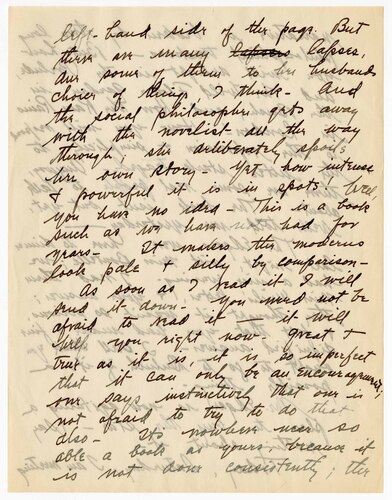 left-hand side of the page. But
there are many lapses lapses.
Are some of them to her husband's
choice of things, I think - And
the social philosopher gets away
with the novelist all the way
through, she deliberately spoils
her own story - Yet how intense
& powerful it is in spots! Well
you have no idea - This is a book
such as we have not had for
years - It makes the moderns
look pale & silly by comparison -
As soon as I read it I will
send it down - You need not be
afraid to read it - it will
help you right now - great &
true as it is, it is so imperfect
that it can only be an encouragement;
one says instinctively that one is
not afraid to try to do that
also - Its nowhere near so
able a book as yours, because it
is not done consistently; the